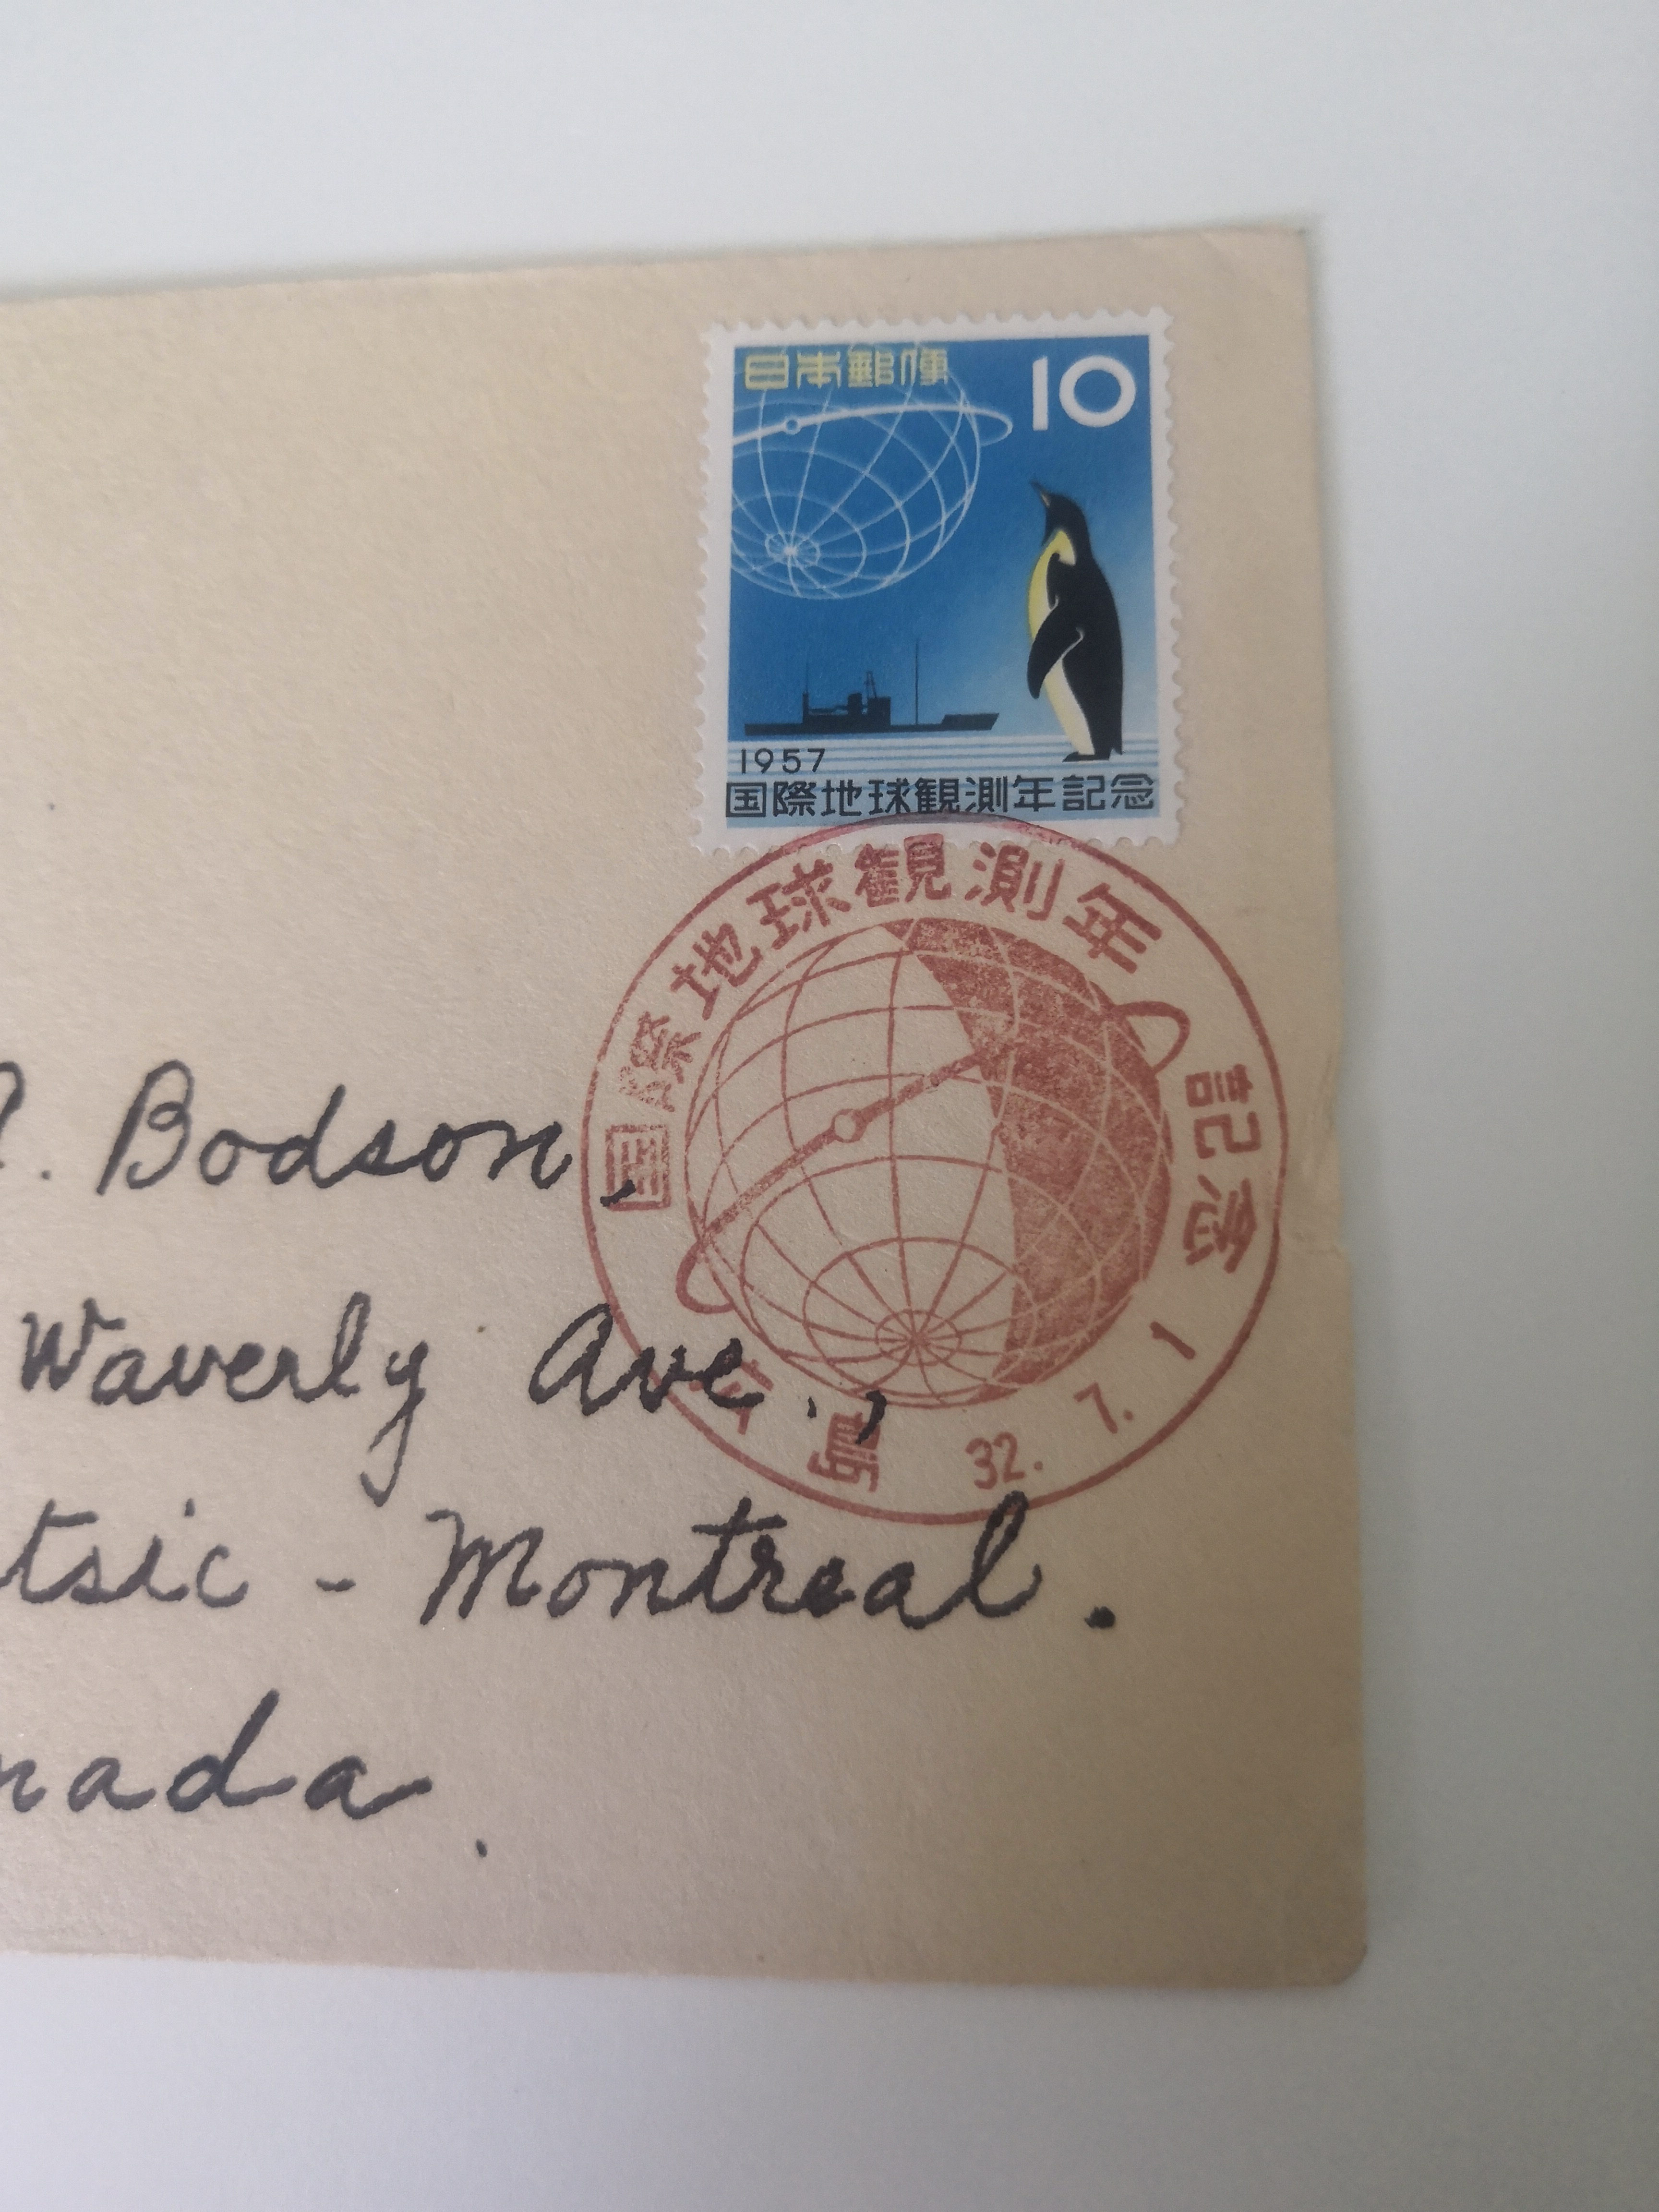 日本郵便
10
1957
国際地球観測年記念
国際地球観測年 記念
32. 7. 1
. Bodson,
Waverly Ave.,
tsic - Montreal.
nada.